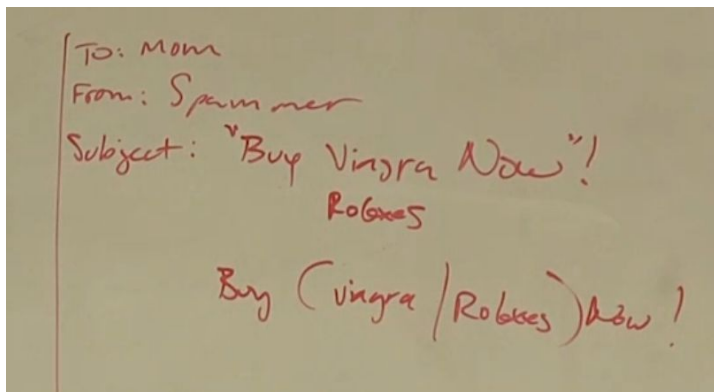 To: Mom
From: Spammer
Subject: "Buy Viagra Now"!
Rolexes
Buy (viagra / Rolexes) Now!